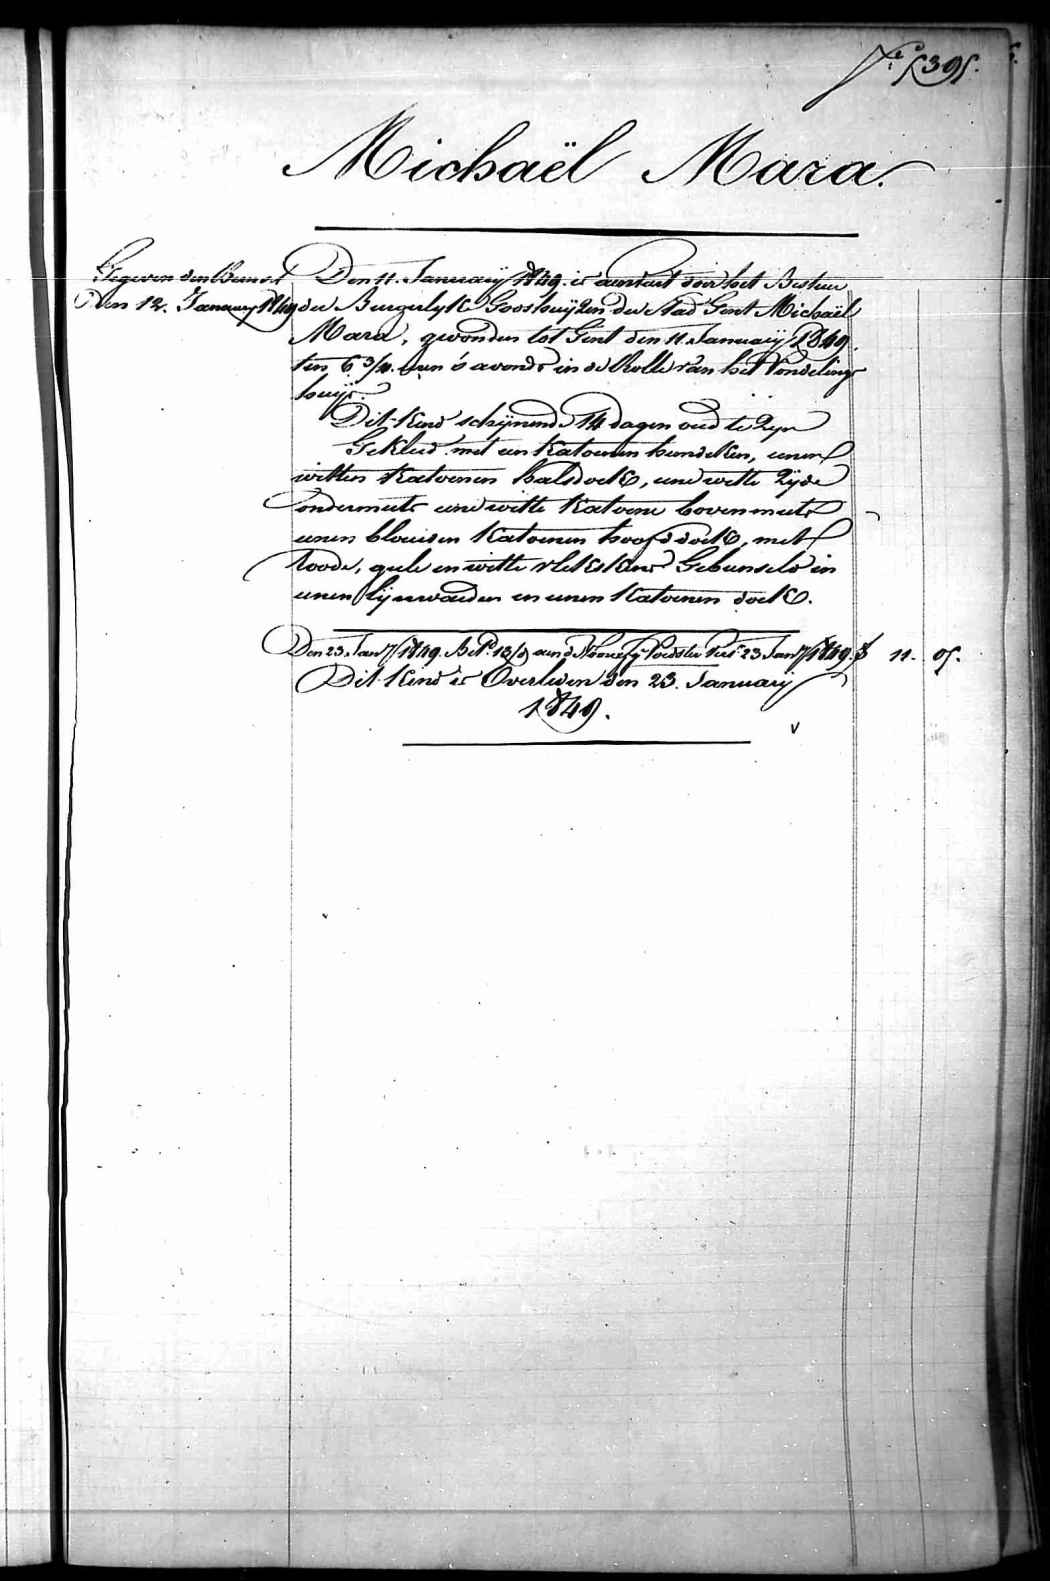 N.° 5395.
Michaël Mara.
Gegeven den Buenst
Den 12. January 1849
Den 11. January 1849. is aenvaert door het Bestuer
der Burgerlyke Godshuyzen der Stad Gent Michaël
Mara, gevonden tot Gent den 11. January 1849.
ten 6 3/4 uren 's avonds in de Rolle van het Vondeling
huys.
Dit Kind schynende 14 dagen oud te zyn
Gekleed met een Katoenen hemdeken, eenen
witten Katoenen halsdoek, eene witte zyde
ondermuts eene witte Katoene bovenmuts
eenen blauwen Katoenen hoofddoek, met
roode, gele en witte vlekskens Gebunseld in
eenen lynwaeden en eenen Katoenen doek.
Den 23. Jan.y 1849. Bet.d 13/d aen de Voedster tot 23 Jan.y 1849. f 11. 05.
Dit Kind is Overleden den 23. January
1849.